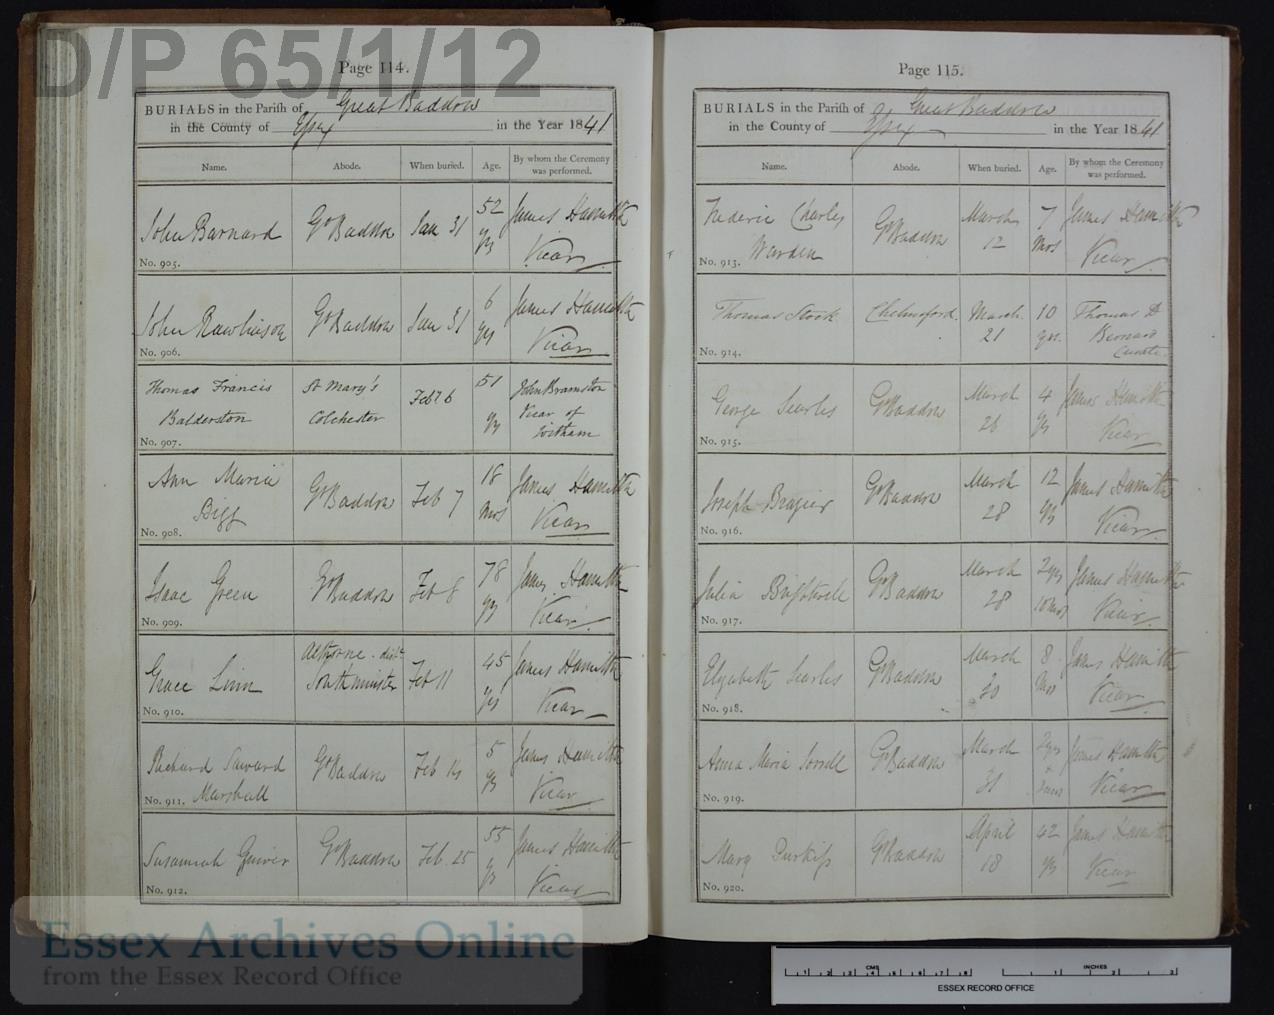 D/P 65/1/12
Page 114.
BURIALS in the Parish of Great Baddow
in the County of Essex in the Year 1841
Name. Abode. When buried. Age. By whom the Ceremony was performed.
John Barnard Gt Baddow Jan 31 52 yrs James Hamilton Vicar
No. 905.
John Rawlinson Gt Baddow Jan 31 6 yrs James Hamilton Vicar
No. 906.
Thomas Francis Balderston St Mary's Colchester Feby 6 51 yrs John Bramston Vicar of Witham
No. 907.
Ann Maria Bigg Gt Baddow Feb 7 18 mos James Hamilton Vicar
No. 908.
Isaac Green Gt Baddow Feb 8 78 yrs James Hamilton Vicar
No. 909.
Grace Linn Althorne Southminster Feb 11 45 yrs James Hamilton Vicar
No. 910.
Richard Saward Marshall Gt Baddow Feb 14 5 yrs James Hamilton Vicar
No. 911.
Susannah Gt Baddow Feb 25 55 yrs James Hamilton Vicar
No. 912.
Page 115.
BURIALS in the Parish of Great Baddow
in the County of Essex in the Year 1841
Name. Abode. When buried. Age. By whom the Ceremony was performed.
Frederic Charles Warden Gt Baddow March 12 7 mos James Hamilton Vicar
No. 913.
Thomas Stock Chelmsford March 21 10 yrs Thomas D Bernard Curate
No. 914.
George Searles Gt Baddow March 26 4 yrs James Hamilton Vicar
No. 915.
Joseph Brazier Gt Baddow March 28 12 yrs James Hamilton Vicar
No. 916.
Julia Brightwell Gt Baddow March 28 2 yrs 10 mos James Hamilton Vicar
No. 917.
Elizabeth Searles Gt Baddow March 30 8 mos James Hamilton Vicar
No. 918.
Anna Maria Sorrell Gt Baddow March 31 2 yrs James Hamilton Vicar
No. 919.
Mary Purkiss Gt Baddow April 18 42 yrs James Hamilton Vicar
No. 920.
Essex Archives Online
from the Essex Record Office
CMS
INCHES
ESSEX RECORD OFFICE